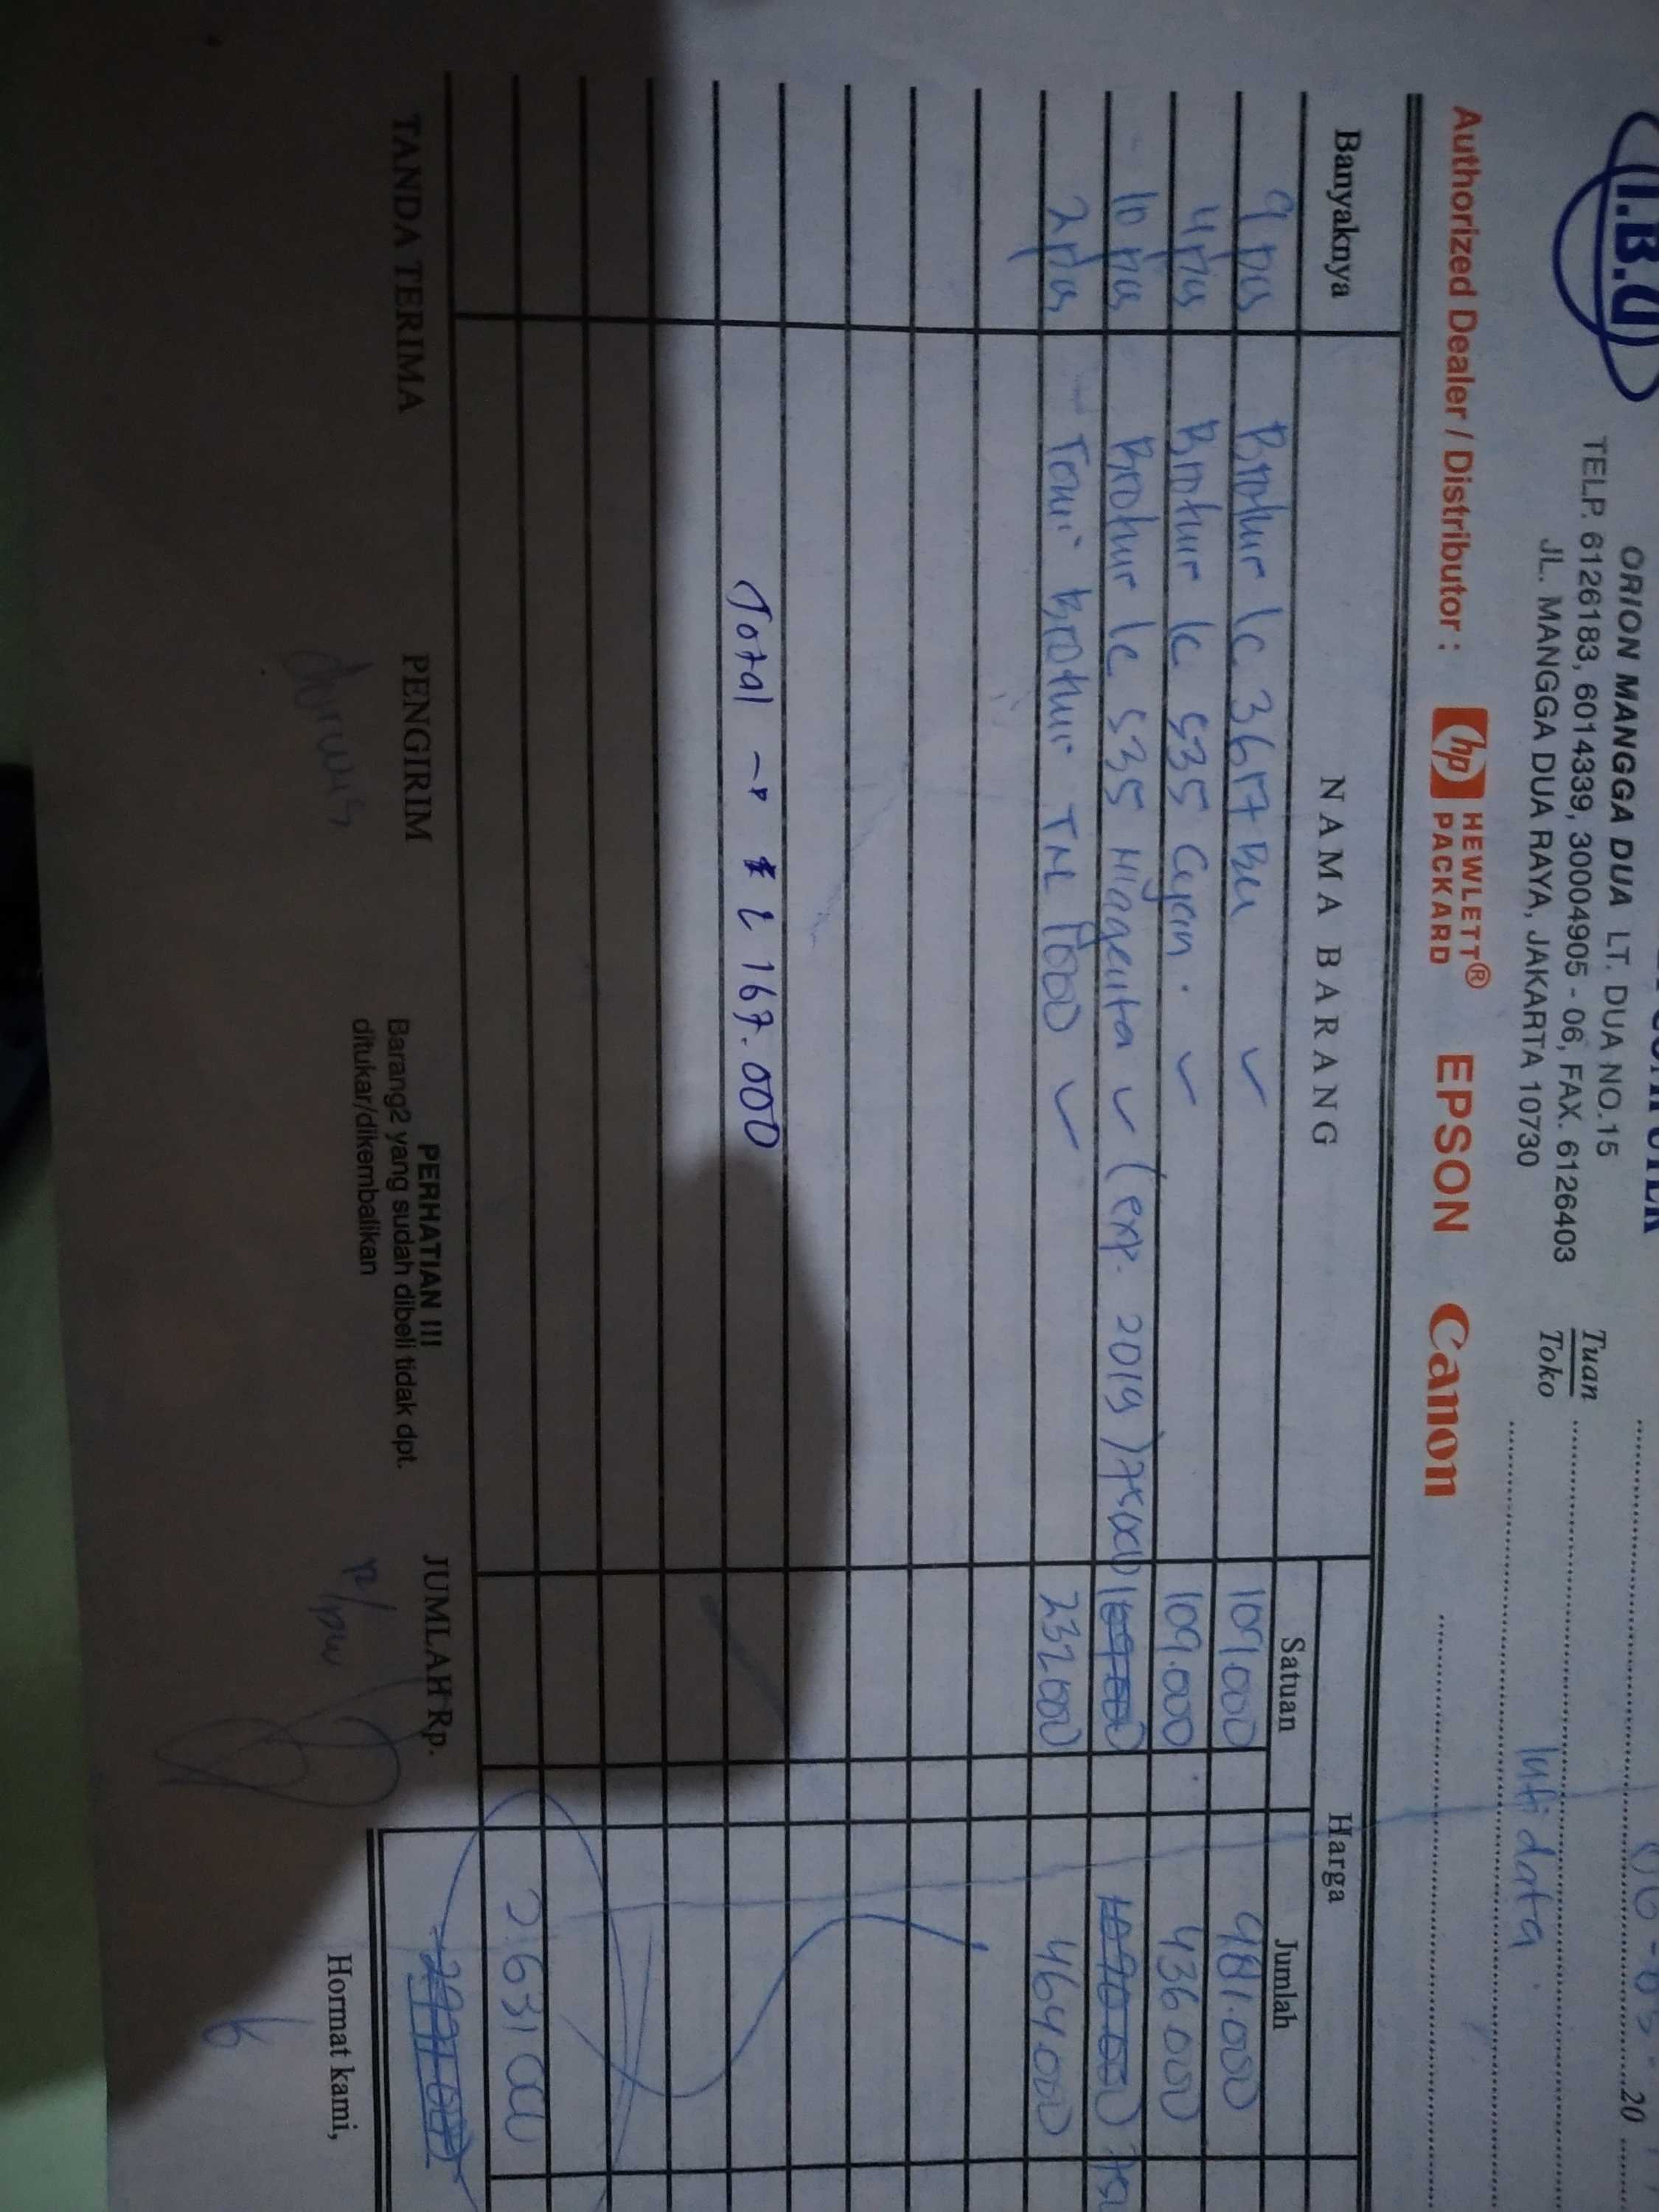 I.B.U
ORION MANGGA DUA LT. DUA NO.15
TELP. 6126183, 6014339, 30004905 - 06, FAX. 6126403
JL. MANGGA DUA RAYA, JAKARTA 10730
20
Tuan
Toko
Inti data
Authorized Dealer / Distributor : hp HEWLETT® PACKARD EPSON Canon
Banyaknya NAMA BARANG Harga
Satuan Jumlah
9 pcs Brother lc 3617 Bk 109.000 981.000
4 pcs Brother lc 535 Cyan. 109.000 436.000
10 pcs Brother lc 535 Magenta (exp. 2019) 75000 109000 1090.000
2 pcs Toner Brother TN 1000 232000 464000
Total → 2 167.000
2.631.000
TANDA TERIMA PENGIRIM PERHATIAN !!! JUMLAH Rp.
Barang2 yang sudah dibeli tidak dpt.
ditukar/dikembalikan
Hormat kami,